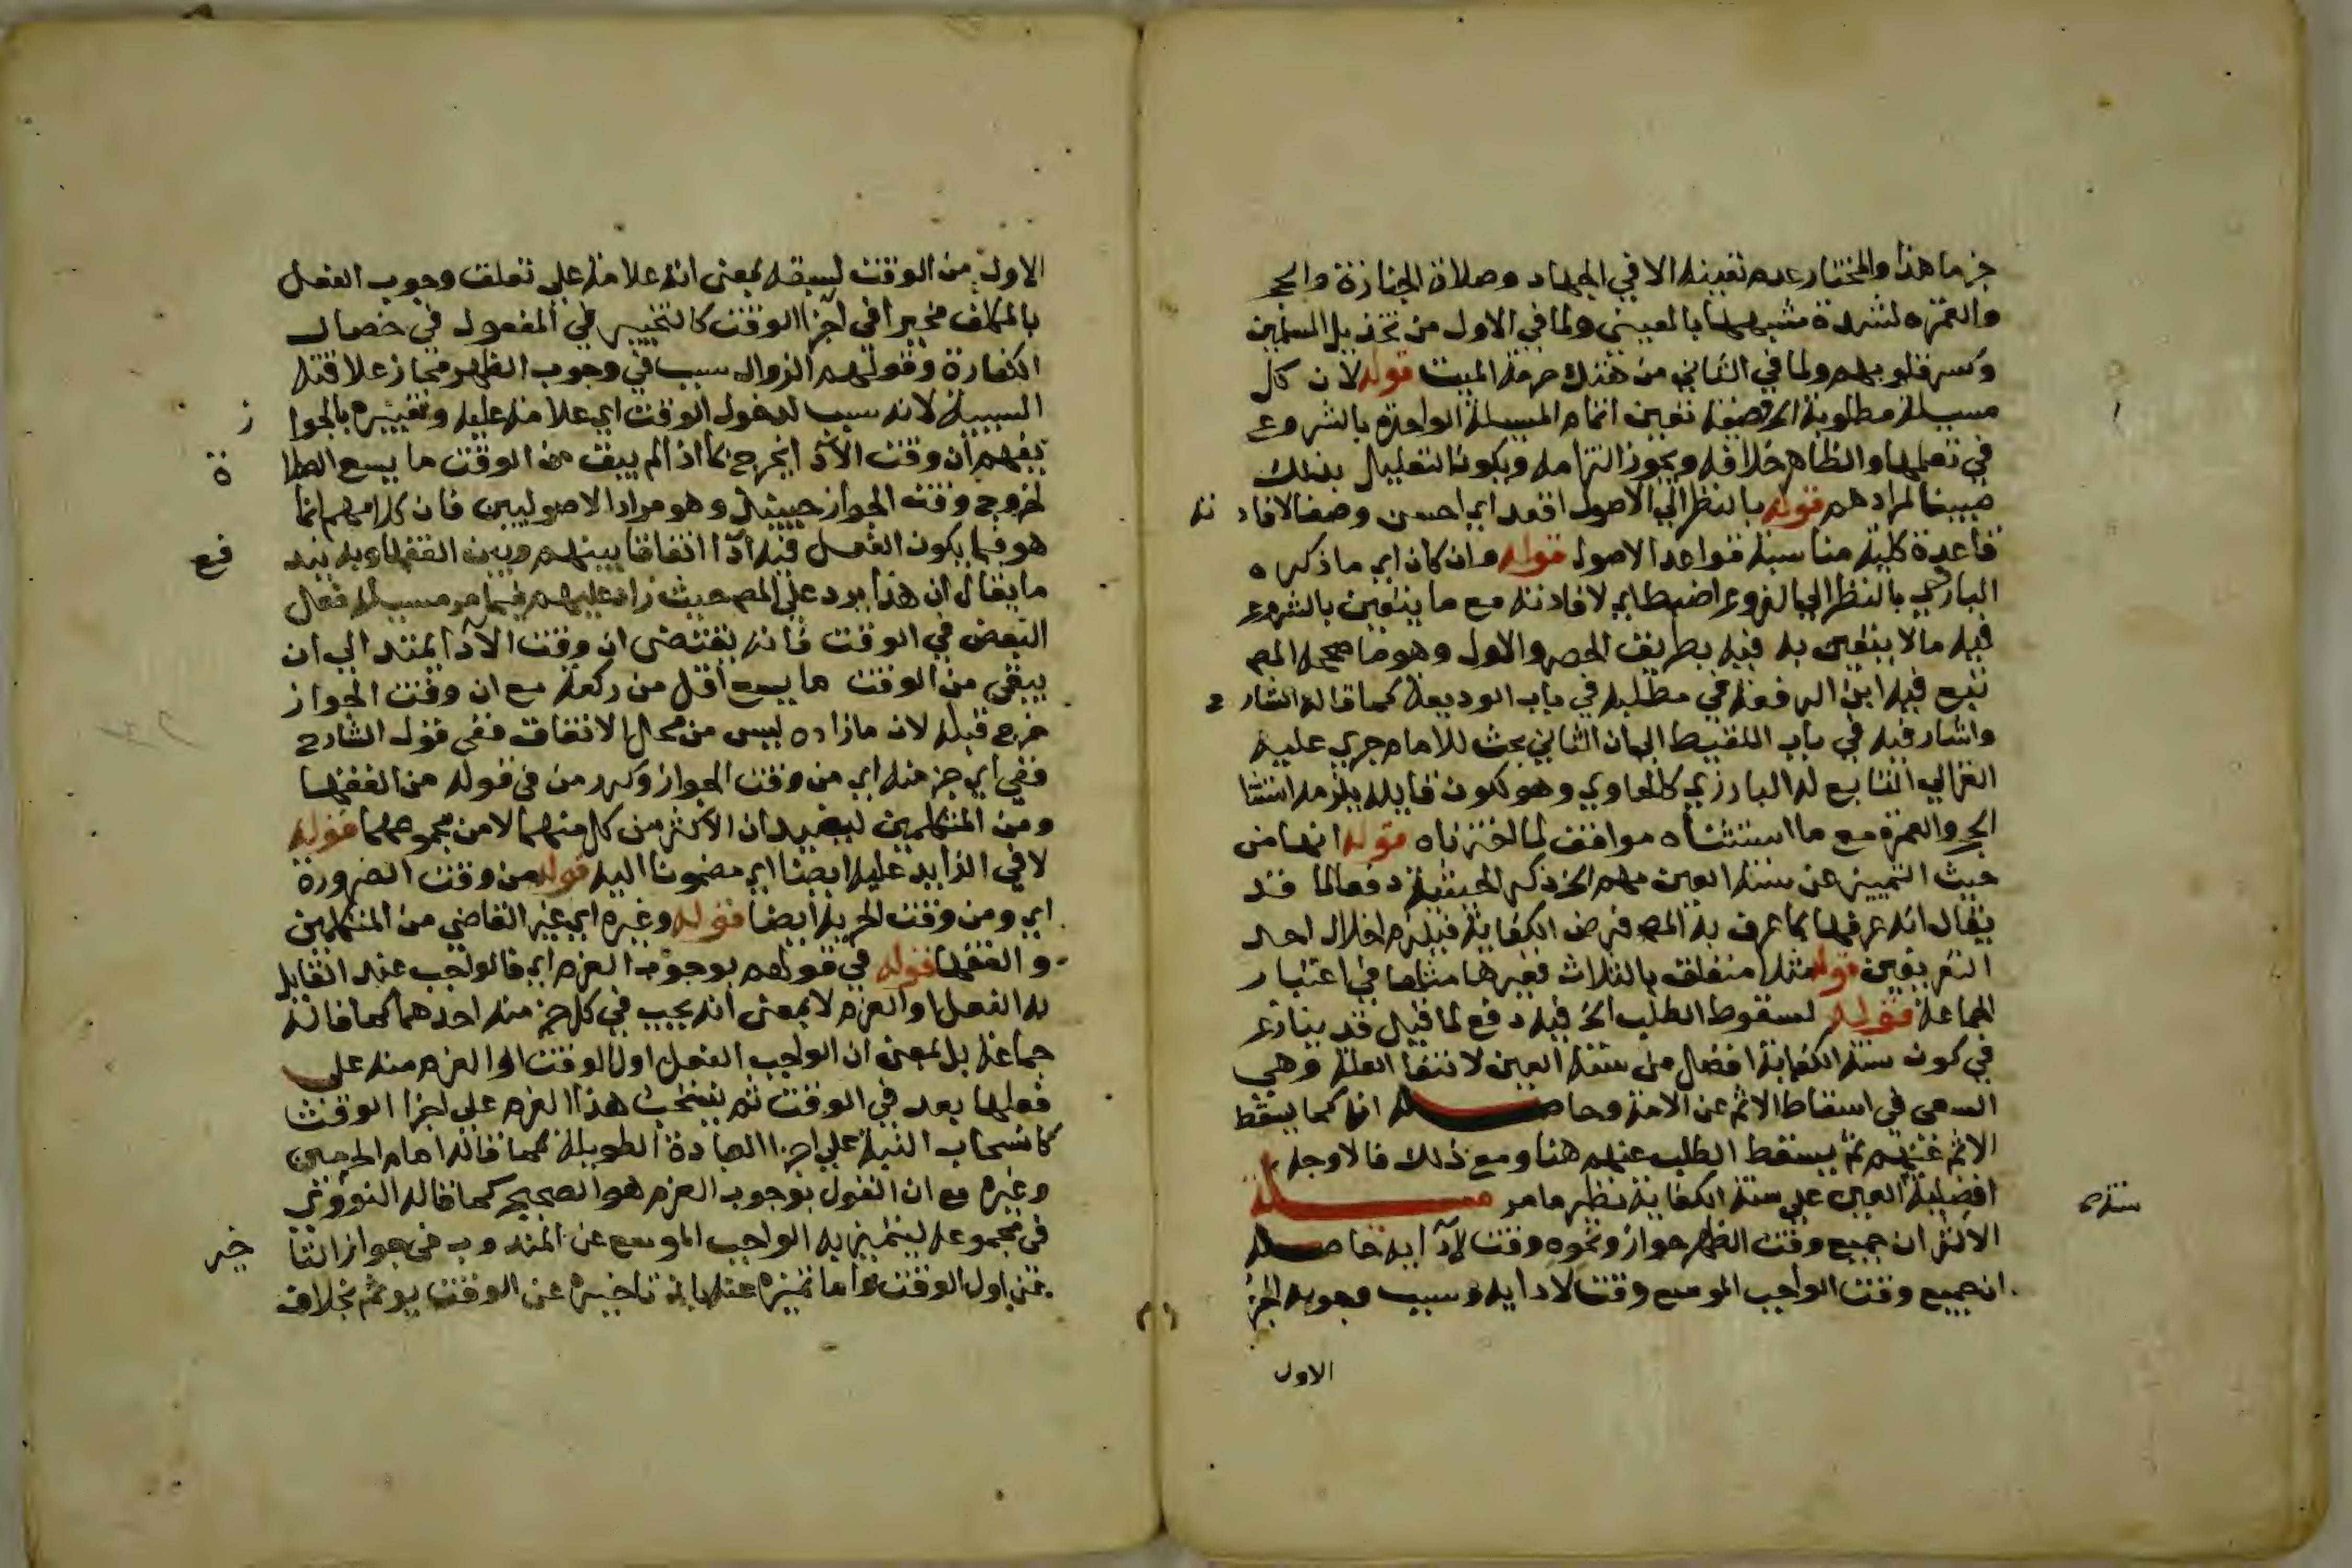 جزما هذا والمختار عدم تعينه الا في الجهاد وصلاة الجنازة والحج
والعمرة لشدة شبهها بالعيني ولما في الاول من تخذيل المسلمين
وكسر قلوبهم ولما في الثاني من هتك حرمة الميت قوله لان كل
مسيلة مطلوبة الخ قضيته تعين اتمام المسيلة الواحدة بالشروع
في تعلمها والظاهر خلافه ويجوز التزامه ويكون التعليل بذلك
مبينا لمرادهم قوله بالنظر الي الاصول اقعد اي احسن وضعا لافاد ته
قاعدة كلية مناسبة قواعد الاصول قوله وان كان اي ما ذكره
البارزي بالنظر الي الفروع اضبط اي لافادته مع ما يتعين بالشروع
فيه مالا يتعين به فيه بطريق الحصر والاول وهو ما صححه المص
تبع فيه ابن الرفعة في مطلبه في باب الوديعة كما قاله الشار ح
واشار فيه في باب اللقيط الي ان الثاني بحث للامام جري عليه
الغزالي التابع له البارزي كالحاوي وهو لكون قايله يلزمه استثنا
الحج والعمرة مع ما استثناه موافق لما اخترناه قوله انها من
حيث التمييز عن سنة العين مهم الخ ذكر الحيثية دفعا لما قد
يقال انه عرفها بما عرف به المص فرض الكفاية فيلزم اخلال احد
التعريفين قوله مثلا متعلق بالثلاث فغيرها مثلها في اعتبار
الجماعة قوله لسقوط الطلب الخ فيه دفع لما قيل قد ينازع
في كون سنة الكفاية افضل من سنة العين لانتفا العلة وهي
السعي في اسقاط الاثم عن الامة وحاصله انه كما يسقط
الاثم عنهم ثم يسقط الطلب عنهم هنا ومع ذلك فالاوجه
افضلية العين علي سنة الكفاية نظير ما مر مسيلة سنة
الاكثر ان جميع وقت الظهر جوازا ونحوه وقت لادايه حاصله
ان جميع وقت الواجب الموسع وقت لادايه وسبب وجوبه الجز
الاول
الاول من الوقت لسبقه بمعني انه علامة علي تعلق وجوب الفعل
بالمكلف مخيرا في اجزا الوقت كالتخيير في المفعول في خصال
الكفارة وقولهم الزوال سبب في وجوب الظهر مجاز علاقته
السببية لانه سبب لدخول الوقت اي علامة عليه وتعبيره بالجوا ز
يفهم ان وقت الادا يخرج بما اذا لم يبق من الوقت ما يسع الطها رة
لخروج وقت الجواز حينيذ وهو مراد الاصوليين فان كلامهم انما
هو فيما يكون الفعل فيه ادا اتفاقا بينهم وبين الفقها وبه يند فع
ما يقال ان هذا يرد علي المص حيث زاد عليهم فيما مر مسيلة فعل
البعض في الوقت فانه يقتضي ان وقت الادا يمتد الي ان
يبقي من الوقت ما يسع اقل من ركعة مع ان وقت الجواز
خرج قبله لان ما زاده ليس من محال الاتفاق ففي قول الشارح
ففي اي جز منه اي من وقت الجواز وكرر من في قوله من الفقها
ومن المتكلمين ليفيد ان الاكثر من كل منهما لا من مجموعهما قوله
لا في الزايد عليه ايضا اي مضموما اليه قوله من وقت الضرورة
اي ومن وقت الحرمة ايضا قوله وغيره اي غير القاضي من المتكلمين
والفقها قوله في قولهم بوجوب العزم اي فالواجب عند القايل
به الفعل او العزم لا بمعني انه يجب في كل جز منه احدهما كما قاله
جماعة بل بمعني ان الواجب الفعل اول الوقت او العزم منه علي
فعلها بعد في الوقت ثم ينسحب هذا العزم علي اجزا الوقت
كانسحاب النية علي اجزا العبادة الطويلة كما قاله امام الحرمين
وغيره مع ان القول بوجوب العزم هو الصحيح كما قاله النووي
في مجموعه ليتميز به الواجب الموسع عن المندوب في جواز التا خير
عن اول الوقت واما تميزه عنه بان تاخيره عن الوقت يوثم بخلاف